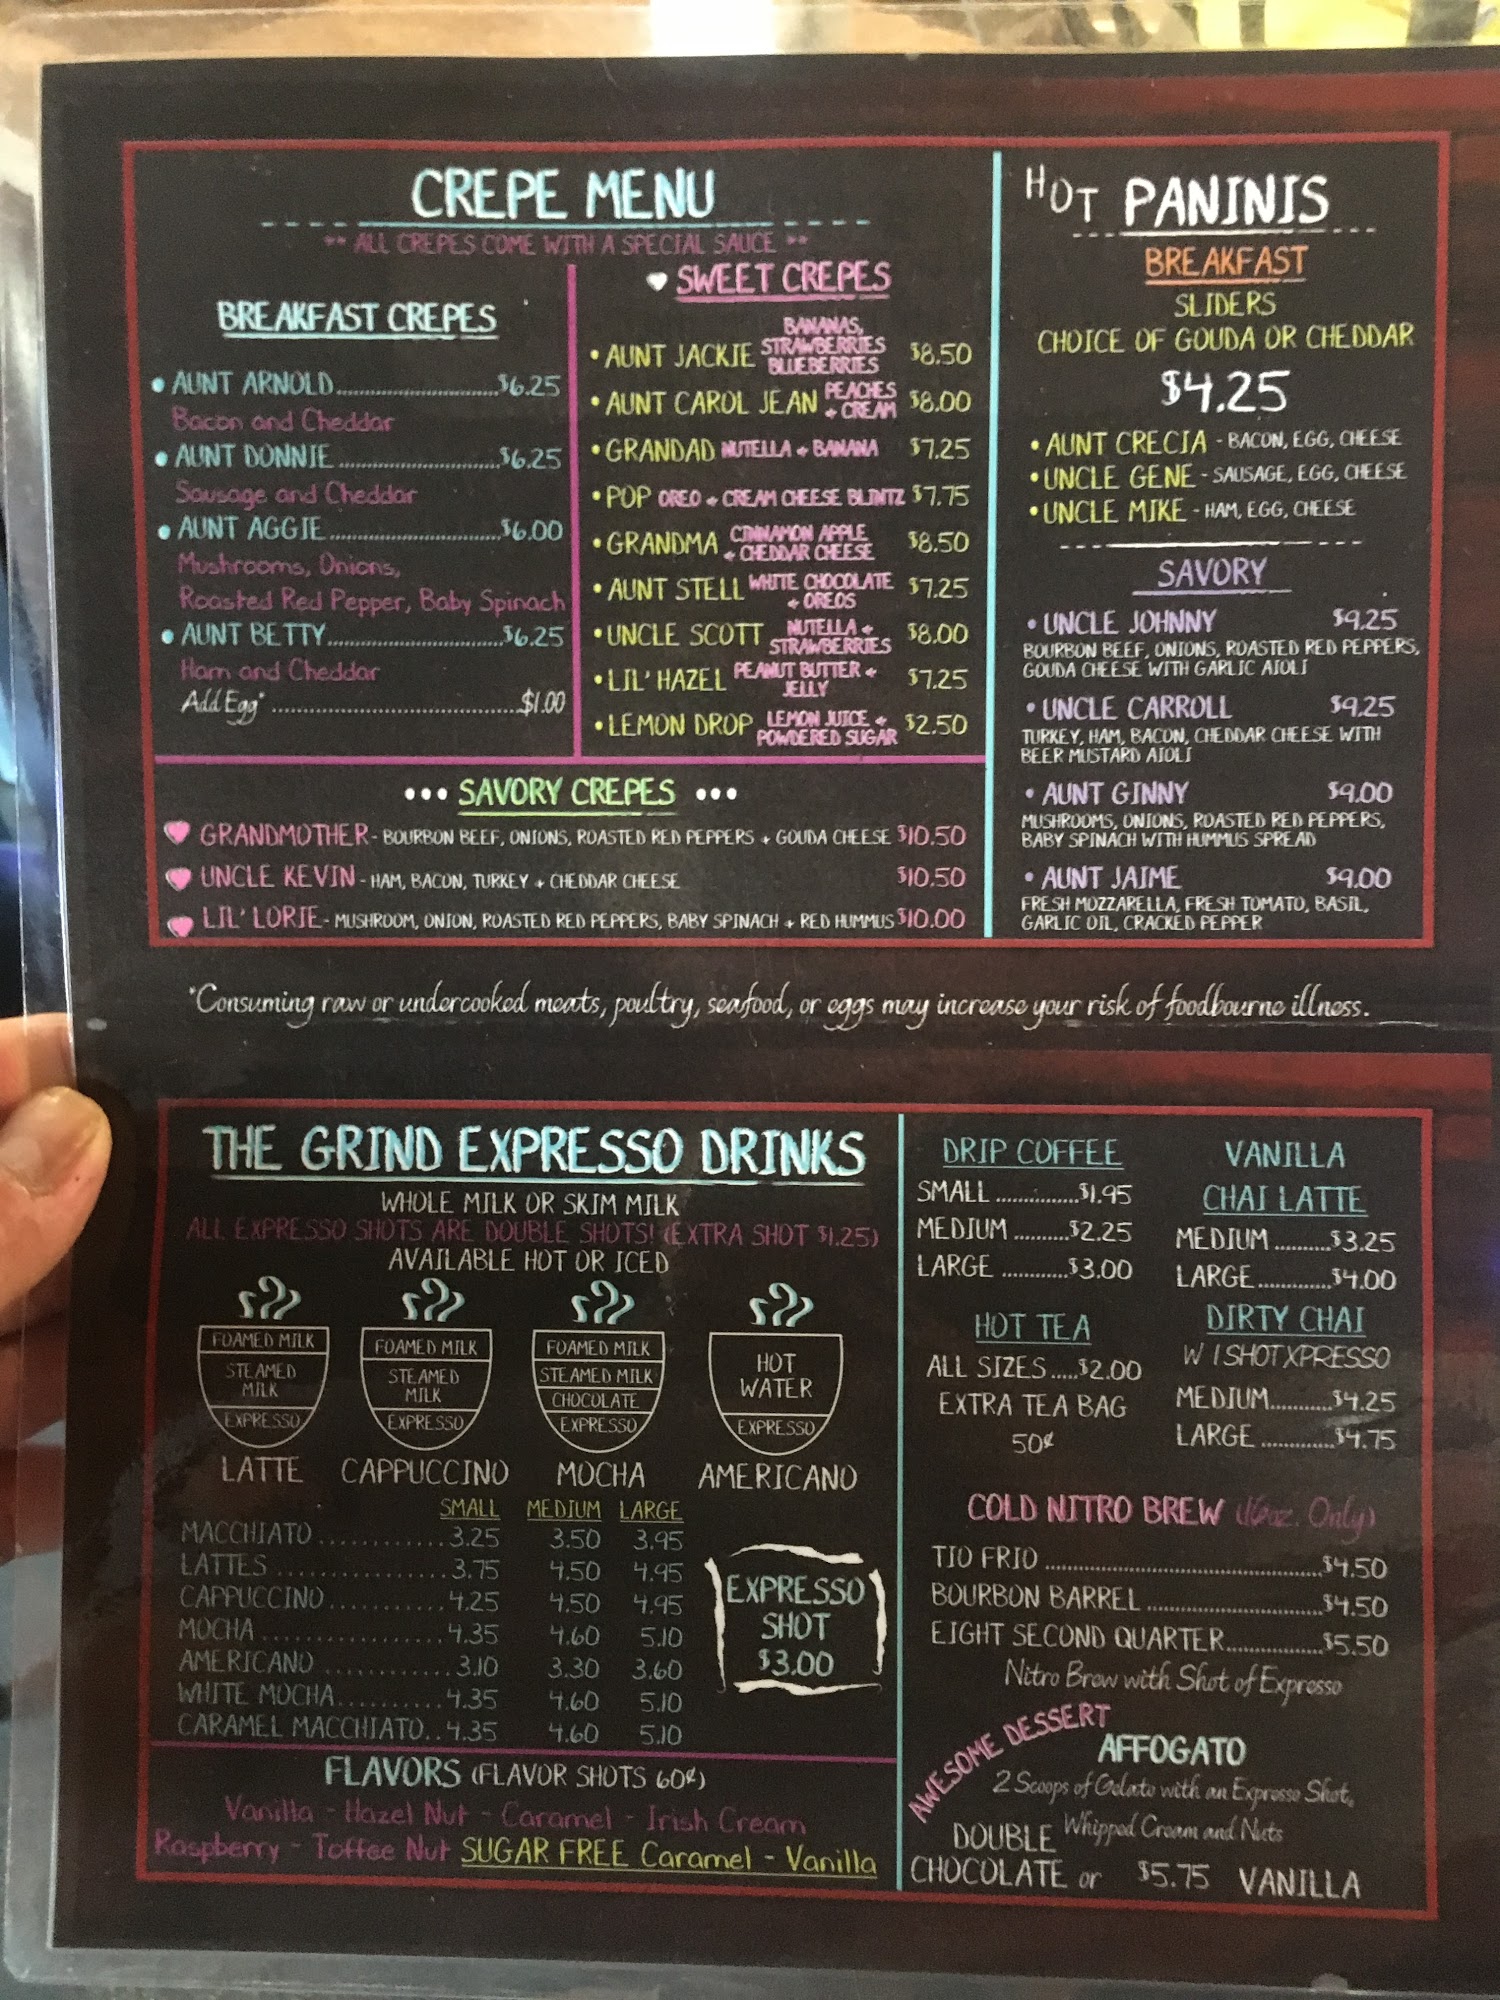 CREPE MENU
** ALL CREPES COME WITH A SPECIAL SAUCE **
BREAKFAST CREPES
• AUNT ARNOLD..............................$6.25
Bacon and Cheddar
• AUNT DONNIE..............................$6.25
Sausage and Cheddar
• AUNT AGGIE..............................$6.00
Mushrooms, Onions,
Roasted Red Pepper, Baby Spinach
• AUNT BETTY..............................$6.25
Ham and Cheddar
Add Egg*..............................$1.00
SWEET CREPES
• AUNT JACKIE BANANAS, STRAWBERRIES BLUEBERRIES $8.50
• AUNT CAROL JEAN PEACHES + CREAM $8.00
• GRANDAD NUTELLA + BANANA $7.25
• POP OREO + CREAM CHEESE BLINTZ $7.75
• GRANDMA CINNAMON APPLE + CHEDDAR CHEESE $8.50
• AUNT STELL WHITE CHOCOLATE + OREOS $7.25
• UNCLE SCOTT NUTELLA + STRAWBERRIES $8.00
• LIL' HAZEL PEANUT BUTTER + JELLY $7.25
• LEMON DROP LEMON JUICE + POWDERED SUGAR $2.50
••• SAVORY CREPES •••
GRANDMOTHER - BOURBON BEEF, ONIONS, ROASTED RED PEPPERS + GOUDA CHEESE $10.50
UNCLE KEVIN - HAM, BACON, TURKEY + CHEDDAR CHEESE $10.50
LIL' LORIE - MUSHROOM, ONION, ROASTED RED PEPPERS, BABY SPINACH + RED HUMMUS $10.00
HOT PANINIS
BREAKFAST
SLIDERS
CHOICE OF GOUDA OR CHEDDAR
$4.25
• AUNT CRECIA - BACON, EGG, CHEESE
• UNCLE GENE - SAUSAGE, EGG, CHEESE
• UNCLE MIKE - HAM, EGG, CHEESE
SAVORY
• UNCLE JOHNNY $9.25
BOURBON BEEF, ONIONS, ROASTED RED PEPPERS,
GOUDA CHEESE WITH GARLIC AIOLI
• UNCLE CARROLL $9.25
TURKEY, HAM, BACON, CHEDDAR CHEESE WITH
BEER MUSTARD AIOLI
• AUNT GINNY $9.00
MUSHROOMS, ONIONS, ROASTED RED PEPPERS,
BABY SPINACH WITH HUMMUS SPREAD
• AUNT JAIME $9.00
FRESH MOZZARELLA, FRESH TOMATO, BASIL,
GARLIC OIL, CRACKED PEPPER
*Consuming raw or undercooked meats, poultry, seafood, or eggs may increase your risk of foodbourne illness.
THE GRIND EXPRESSO DRINKS
WHOLE MILK OR SKIM MILK
ALL EXPRESSO SHOTS ARE DOUBLE SHOTS! (EXTRA SHOT $1.25)
AVAILABLE HOT OR ICED
FOAMED MILK
STEAMED
MILK
EXPRESSO
LATTE
FOAMED MILK
STEAMED
MILK
EXPRESSO
CAPPUCCINO
FOAMED MILK
STEAMED MILK
CHOCOLATE
EXPRESSO
MOCHA
HOT
WATER
EXPRESSO
AMERICANO
SMALL MEDIUM LARGE
MACCHIATO............3.25 3.50 3.95
LATTES................3.75 4.50 4.95
CAPPUCCINO...........4.25 4.50 4.95
MOCHA.................4.35 4.60 5.10
AMERICANO............3.10 3.30 3.60
WHITE MOCHA..........4.35 4.60 5.10
CARAMEL MACCHIATO..4.35 4.60 5.10
EXPRESSO
SHOT
$3.00
FLAVORS (FLAVOR SHOTS 60¢)
Vanilla - Hazel Nut - Caramel - Irish Cream
Raspberry - Toffee Nut SUGAR FREE Caramel - Vanilla
DRIP COFFEE
SMALL...............$1.95
MEDIUM..........$2.25
LARGE............$3.00
HOT TEA
ALL SIZES.....$2.00
EXTRA TEA BAG
50¢
VANILLA
CHAI LATTE
MEDIUM..........$3.25
LARGE.............$4.00
DIRTY CHAI
W 1 SHOT XPRESSO
MEDIUM...........$4.25
LARGE.............$4.75
COLD NITRO BREW (16oz. Only)
TIO FRIO..............................$4.50
BOURBON BARREL..............................$4.50
EIGHT SECOND QUARTER.................$5.50
Nitro Brew with Shot of Expresso
AWESOME DESSERT
AFFOGATO
2 Scoops of Gelato with an Expresso Shot,
Whipped Cream and Nuts
DOUBLE
CHOCOLATE or $5.75 VANILLA